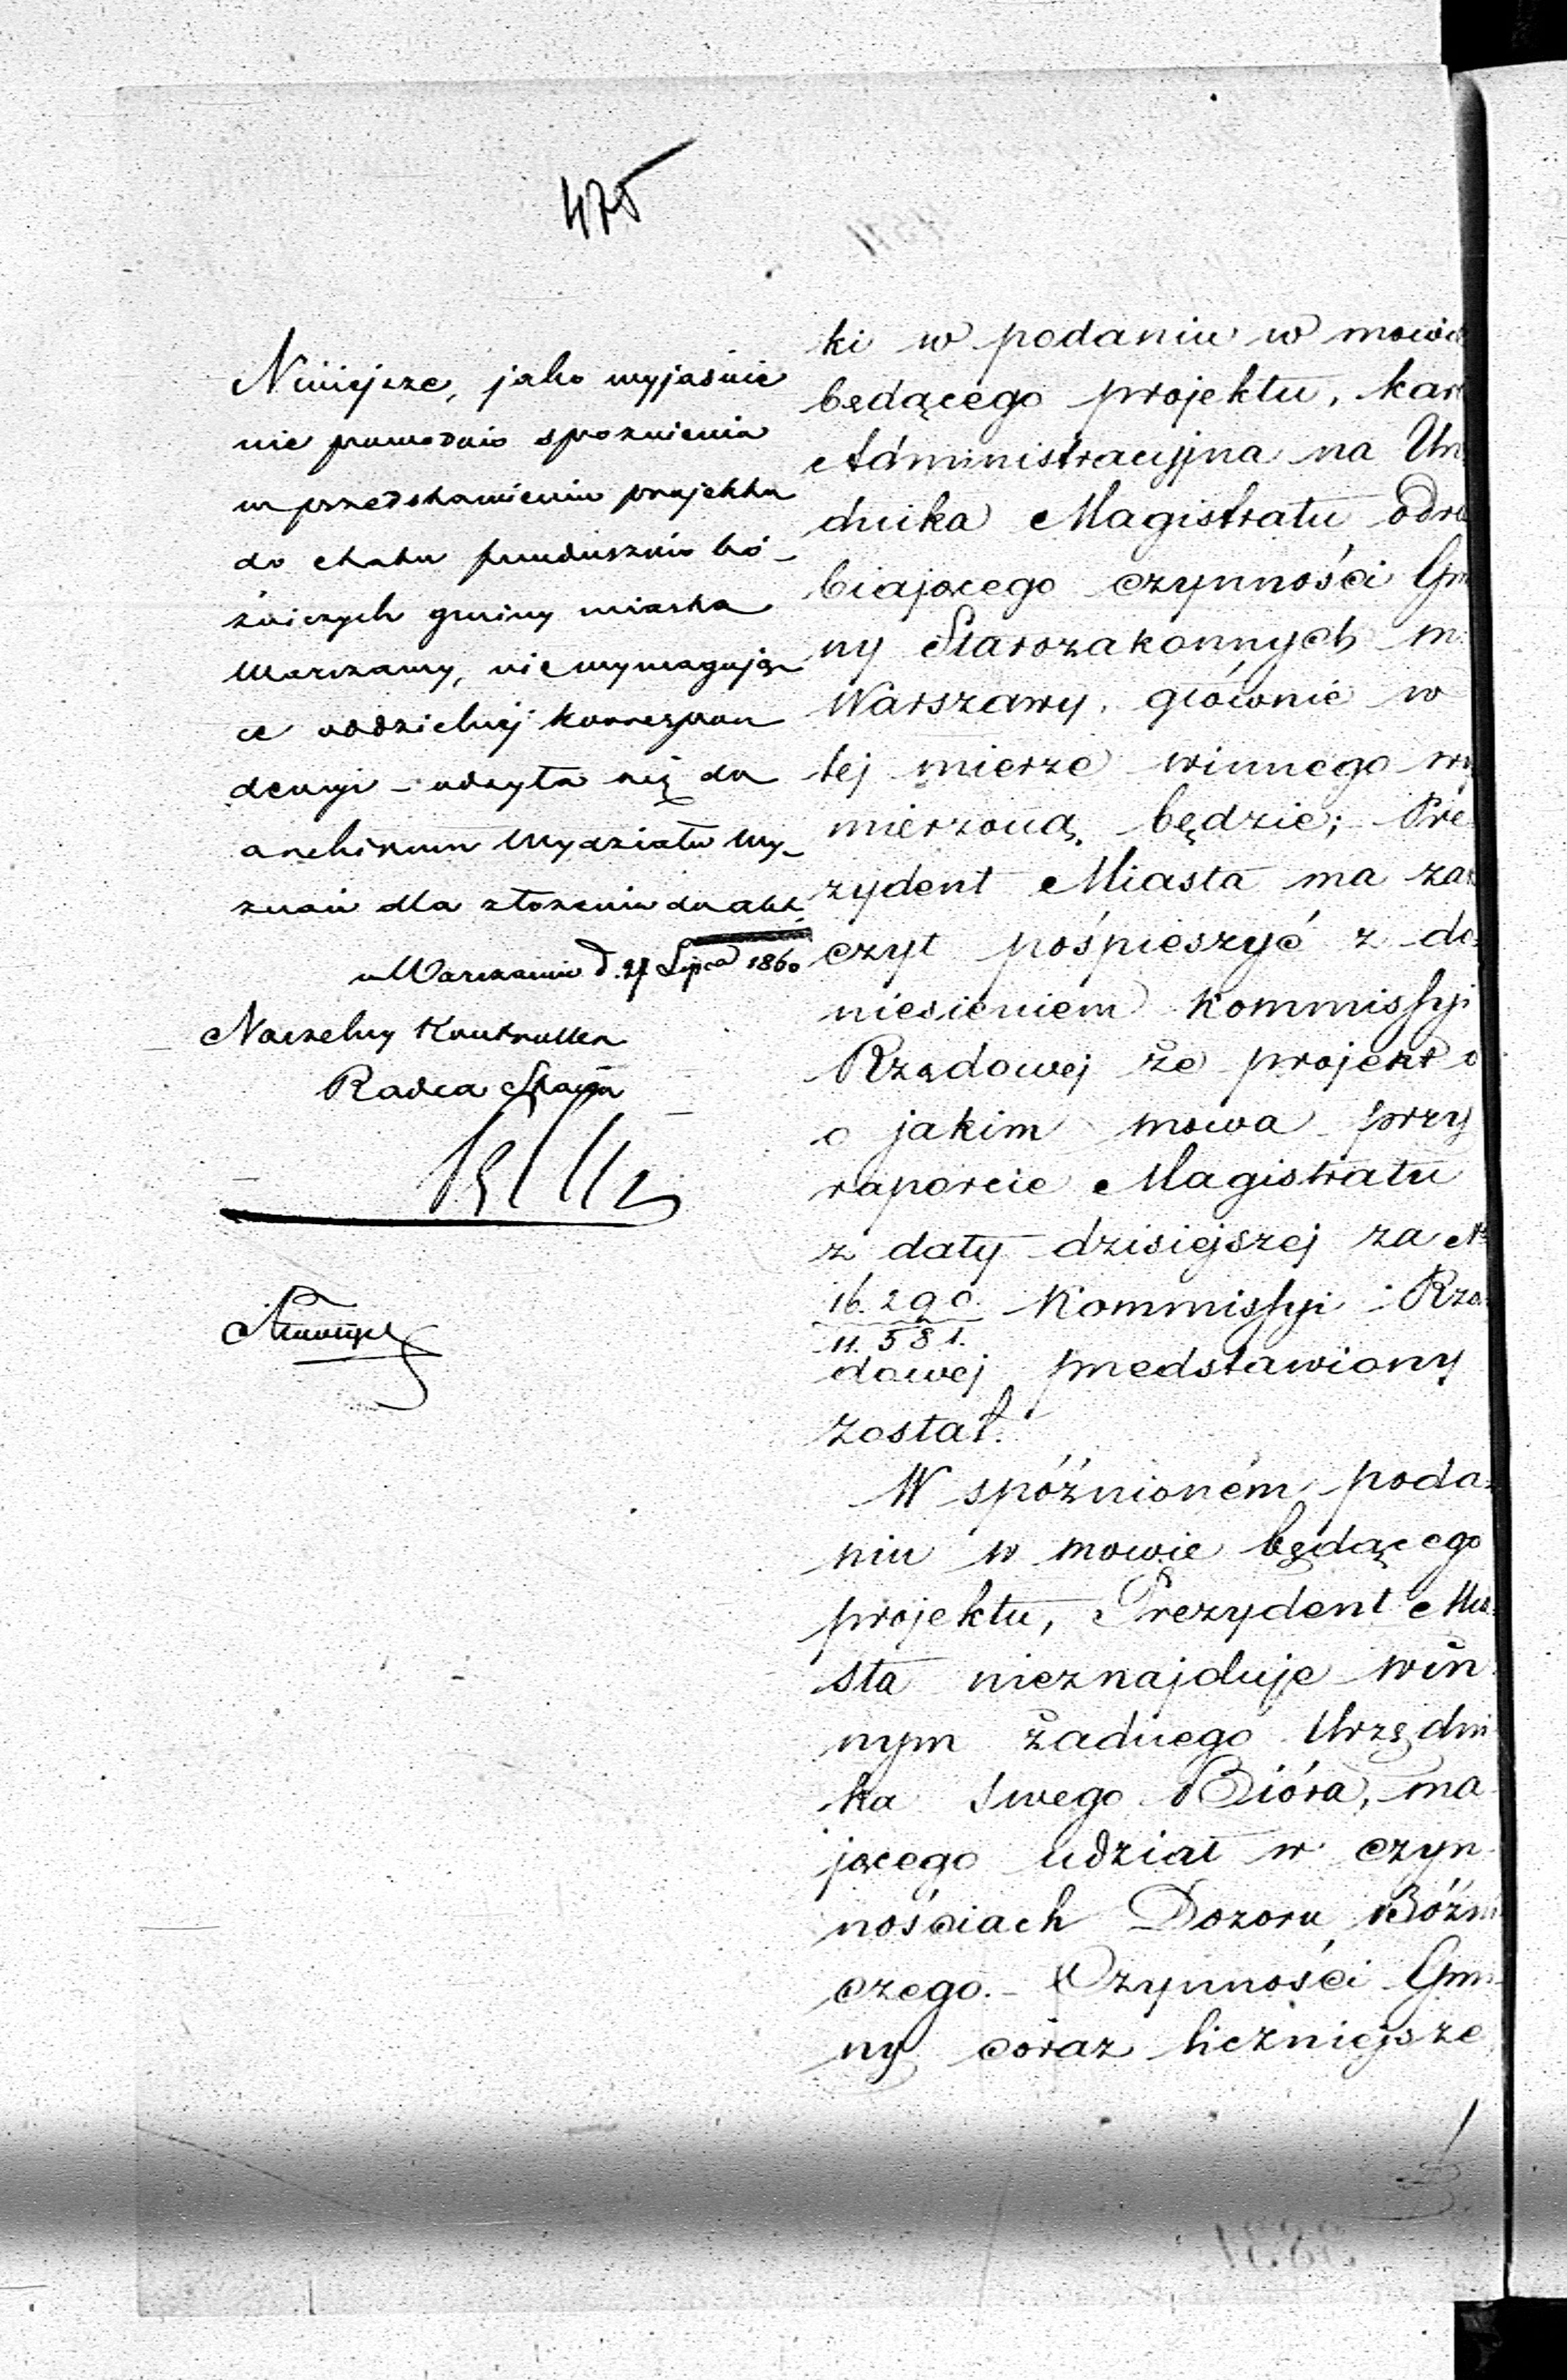 475
Niniejsze, jako wyjaśnie
nie powodów spoznienia
w przedstawieniu projektu
do etatu funduszów bó-
źniczych gminy miasta
Warszawy, nie wymagają
ce oddzielnéj korrespon
dencyi - odsyła się do
archiwum Wydziału Wy-
znań dla złożenia do akt.
w Warszawie d. 27 Lipca 1860
Naczelny Kontroller
Radca Stanu
ki w podaniu w mowie
będącego projektu, kara
Administracyjna na Urzę
dnika Magistratu odra
biającego czynności Gmi
ny Starozakonnych m.
Warszawy, głównie w
tej mierze winnego wy
mierzoną będzie; Pre
zydent Miasta ma zasz
czyt pośpieszyć z do
niesieniem Kommissyi
Rządowej że projekt
o jakim mowa przy
raporcie Magistratu
z daty dzisiejszej za Nr
16.290. Kommissyi Rzą
11.581.
dowej przedstawiony
został.
W spóźnioném poda-
niu w mowie będącego
projektu, Prezydent Mia
sta nieznajduje win
nym żadnego Urzędni
ka Swego Bióra, ma
jącego udział w czyn
nościach Dozoru Bóźni
czego. - Czynności Gmi
ny coraz liczniejsze